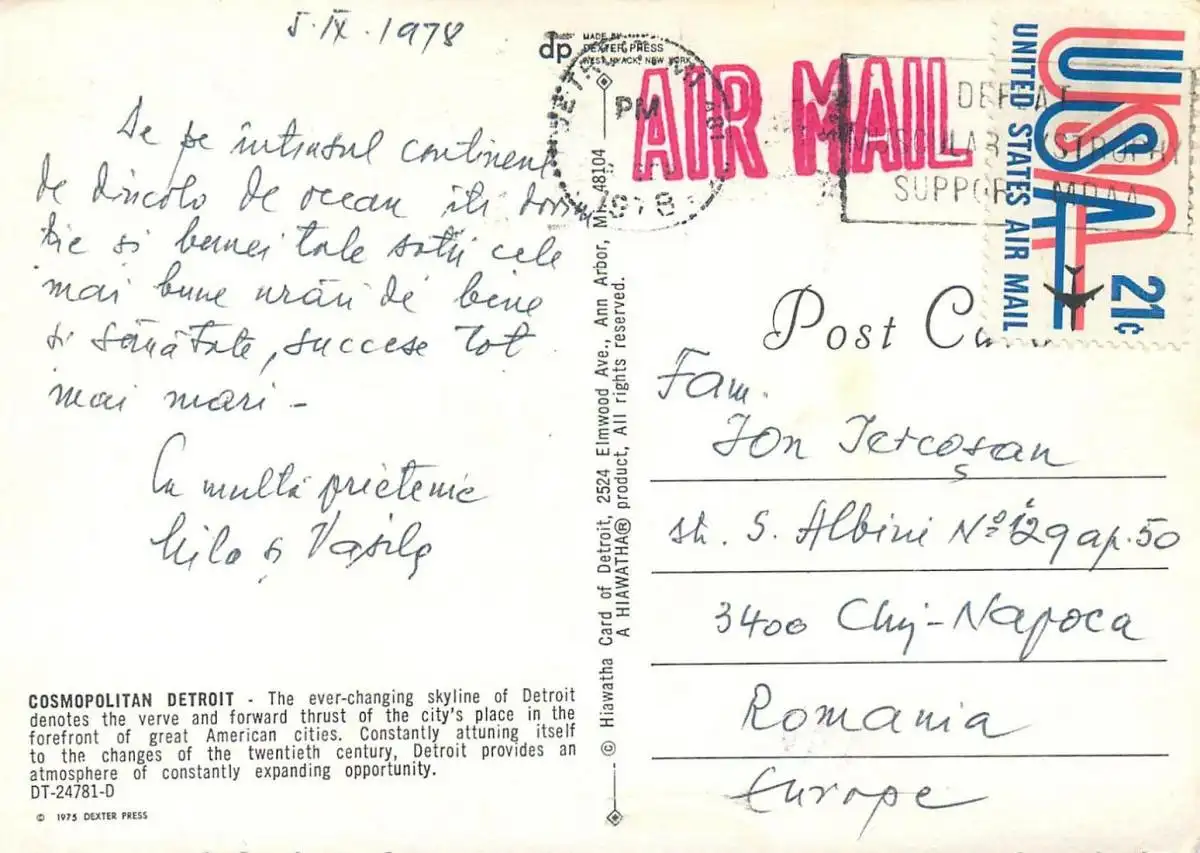 5.IX.1978
De pe întinsul continent
de dincolo de ocean îți dorim
ție și bunei tale soții cele
mai bune urări de bine
și sănătate, succese tot
mai mari -
Cu multă prietenie
și Vasile
COSMOPOLITAN DETROIT - The ever-changing skyline of Detroit
denotes the verve and forward thrust of the city's place in the
forefront of great American cities. Constantly attuning itself
to the changes of the twentieth century, Detroit provides an
atmosphere of constantly expanding opportunity.
DT-24781-D
© 1975 DEXTER PRESS
dp
MADE BY
DEXTER PRESS
WEST NYACK, NEW YORK
© Hiawatha Card of Detroit, 2524 Elmwood Ave., Ann Arbor, MI 48104
A HIAWATHA® product, All rights reserved.
PM
1978
AIR MAIL
DEFEAT
MUSCULAR DYSTROPHY
SUPPORT MDAA
USA
UNITED STATES AIR MAIL
21c
Post Ca
Fam.
Ion Tercoșan
str. S. Albini No 29 ap. 50
3400 Cluj-Napoca
Romania
Europe